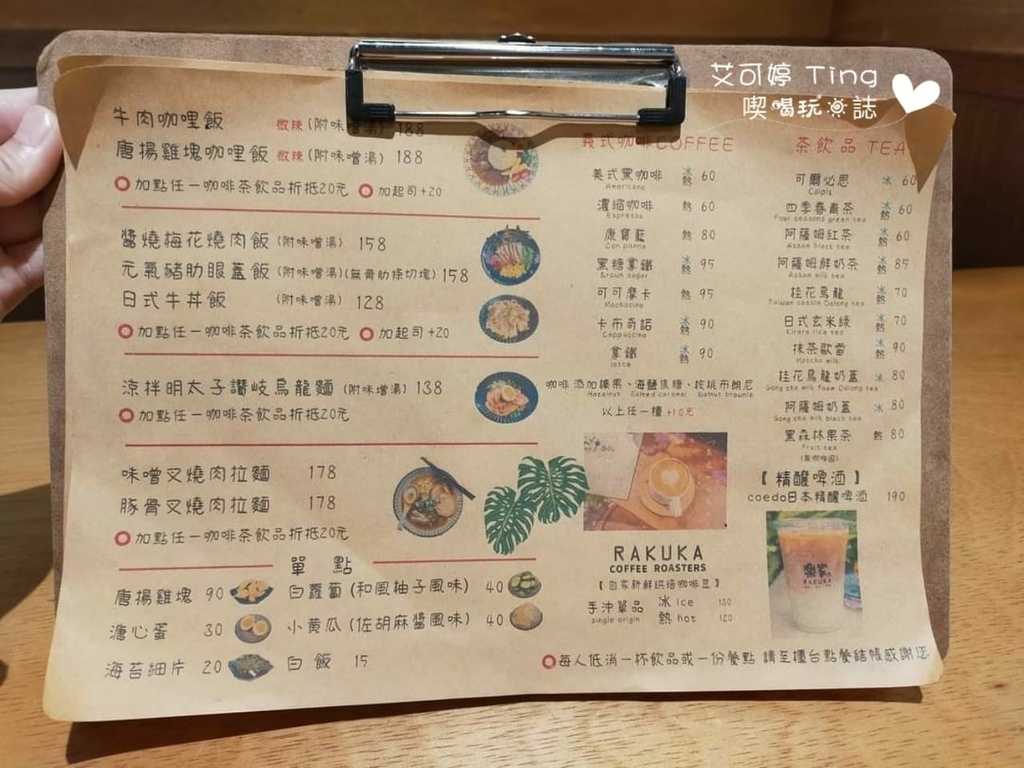 艾可婷 Ting
喫喝玩☼誌
牛肉咖哩飯 微辣 (附味噌湯) 188
唐揚雞塊咖哩飯 微辣 (附味噌湯) 188
加點任一咖啡茶飲品折抵20元 加起司+20
醬燒梅花燒肉飯 (附味噌湯) 158
元氣豬肋眼蓋飯 (附味噌湯)(無骨肋條切塊) 158
日式牛丼飯 (附味噌湯) 128
加點任一咖啡茶飲品折抵20元 加起司+20
涼拌明太子讚岐烏龍麵 (附味噌湯) 138
加點任一咖啡茶飲品折抵20元
味噌叉燒肉拉麵 178
豚骨叉燒肉拉麵 178
加點任一咖啡茶飲品折抵20元
單點
唐揚雞塊 90 白蘿蔔(和風柚子風味) 40
溏心蛋 30 小黃瓜(佐胡麻醬風味) 40
海苔細片 20 白飯 15
義式咖啡COFFEE
美式黑咖啡 冰熱 60
Americano
濃縮咖啡 熱 60
Espresso
康寶藍 熱 80
Con panna
黑糖拿鐵 冰熱 95
Brown sugar
可可摩卡 熱 95
Mochacino
卡布奇諾 冰熱 90
Cappuccino
拿鐵 冰熱 90
latte
咖啡 添加榛果、海鹽焦糖、核桃布朗尼
Hazelnut Salted caramel Walnut brownie
以上任一種 +10元
RAKUKA
COFFEE ROASTERS
【自家新鮮烘焙咖啡豆】
手沖單品 冰 ice 130
single origin 熱 hot 120
茶飲品 TEA
可爾必思 冰 60
Calpis
四季春青茶 冰熱 60
Four seasons green tea
阿薩姆紅茶 冰熱 60
Assam black tea
阿薩姆鮮奶茶 冰熱 85
Assam milk tea
桂花烏龍 冰熱 70
Taiwan cassia Oolong tea
日式玄米綠 冰熱 70
抹茶歐蕾 冰熱 90
Matcha milk
桂花烏龍奶蓋 冰 80
Gong cha milk foam Oolong tea
阿薩姆奶蓋 冰 80
Gong cha milk black tea
黑森林果茶 熱 80
Fruit tea
(無咖啡因)
【精釀啤酒】
coedo日本精釀啤酒 190
樂家
RAKUKA
每人低消一杯飲品或一份餐點 請至櫃台點餐結帳感謝您